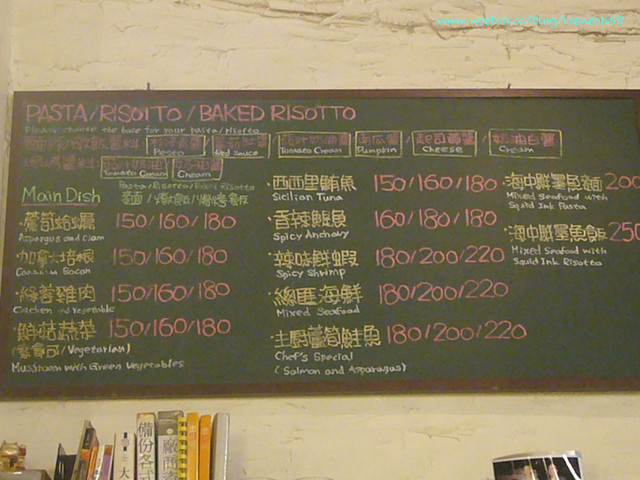 PASTA/RISOTTO/BAKED RISOTTO
Please choose the base for your pasta/risotto
Pesto
Red Sauce
Tomato Cream
南瓜醬
Pumpkin
起司黃醬
Cheese
奶油白醬
Cream
Tomato Cream
Cream
Main Dish
Pasta/Risotto/Baked Risotto
蘆筍蛤蠣 150/160/180
Asparagus and Clam
加拿大培根 150/160/180
Canadian Bacon
綠蔬雞肉 150/160/180
Chicken and Vegetable
鮮菇蔬菜 150/160/180
(素食可/Vegetarian)
Mushroom with Green Vegetables
·西西里鮪魚 150/160/180
Sicilian Tuna
·香辣鯷魚 160/180/180
Spicy Anchovy
·辣味鮮蝦 180/200/220
Spicy Shrimp
·總匯海鮮 180/200/220
Mixed Seafood
·主廚蘆筍鮭魚 180/200/220
Chef's Special
(Salmon and Asparagus)
·海中鮮墨魚麵 200
Mixed Seafood with
Squid Ink Pasta
·海中鮮墨魚飯 250
Mixed Seafood with
Squid Ink Risotto
備份各式
廠商